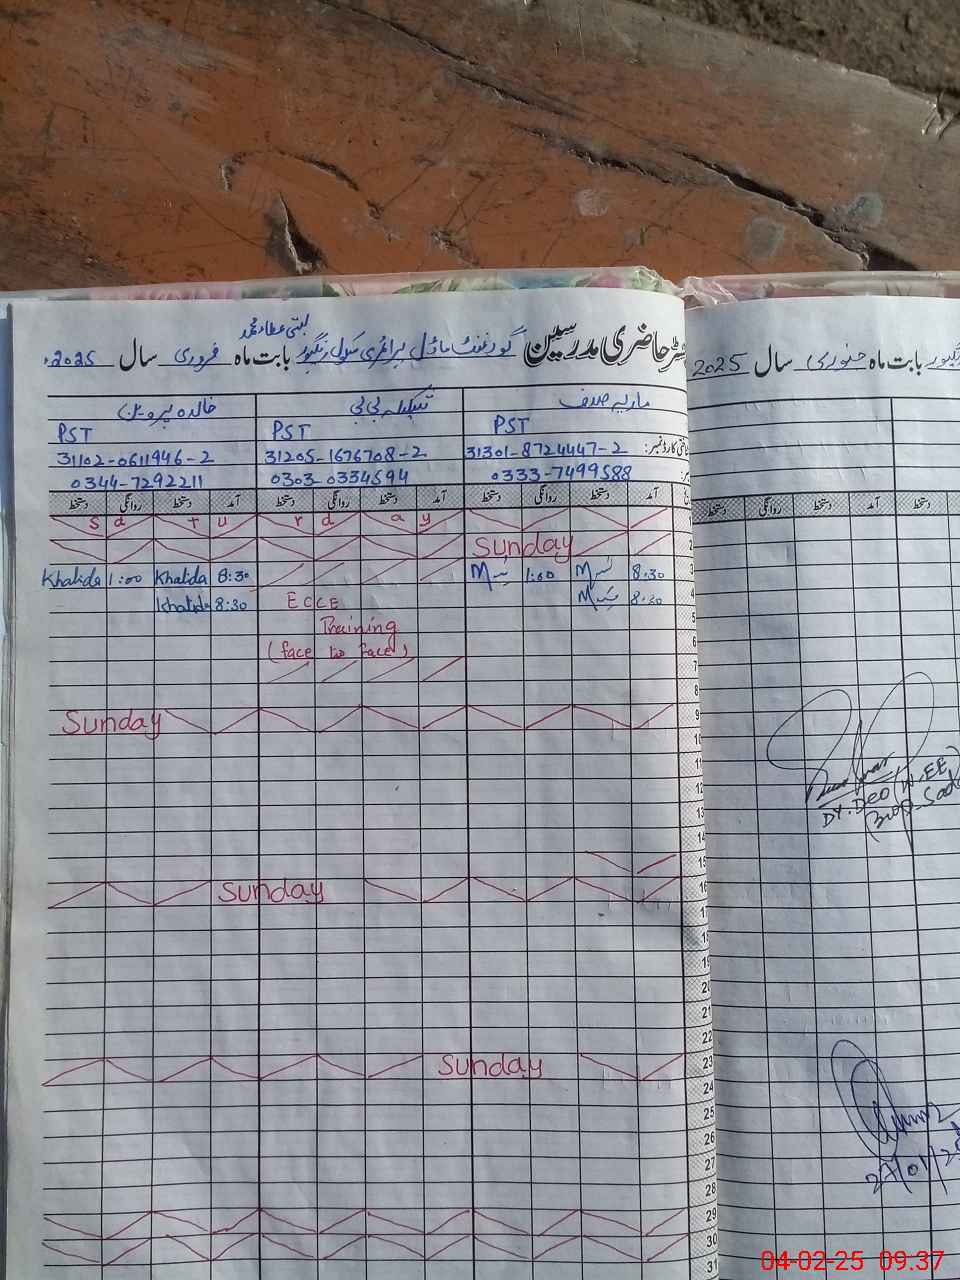 رجسٹر حاضری مدرسین گورنمنٹ ماڈل پرائمری سکول رنگپور بستی عطاء محمد بابت ماہ فروری سال 2025ء
ماریہ صدف شکیلہ بی بی خالدہ پروین
PST PST PST
شناختی کارڈ نمبر: 31301-8724447-2 31205-1676708-2 31102-0611946-2
0333-7499588 0303-0334594 0344-7292211
آمد دستخط روانگی دستخط آمد دستخط روانگی دستخط آمد دستخط روانگی دستخط
S a t u r d a y 1
Sunday 2
Khalida 1:00 Khalida 8:30 1:00 8:30 3
Khalida 8:30 ECCE 8:30 4
Training 5
(face to face) 6
7
8
Sunday 9
10
11
12
13
14
15
Sunday 16
17
18
19
20
21
22
Sunday 23
24
25
26
27
28
29
30
31
رنگپور بابت ماہ جنوری سال 2025
آمد دستخط روانگی دستخط
DY. DEO (W.EE)
27/01/25
04-02-25 09.37